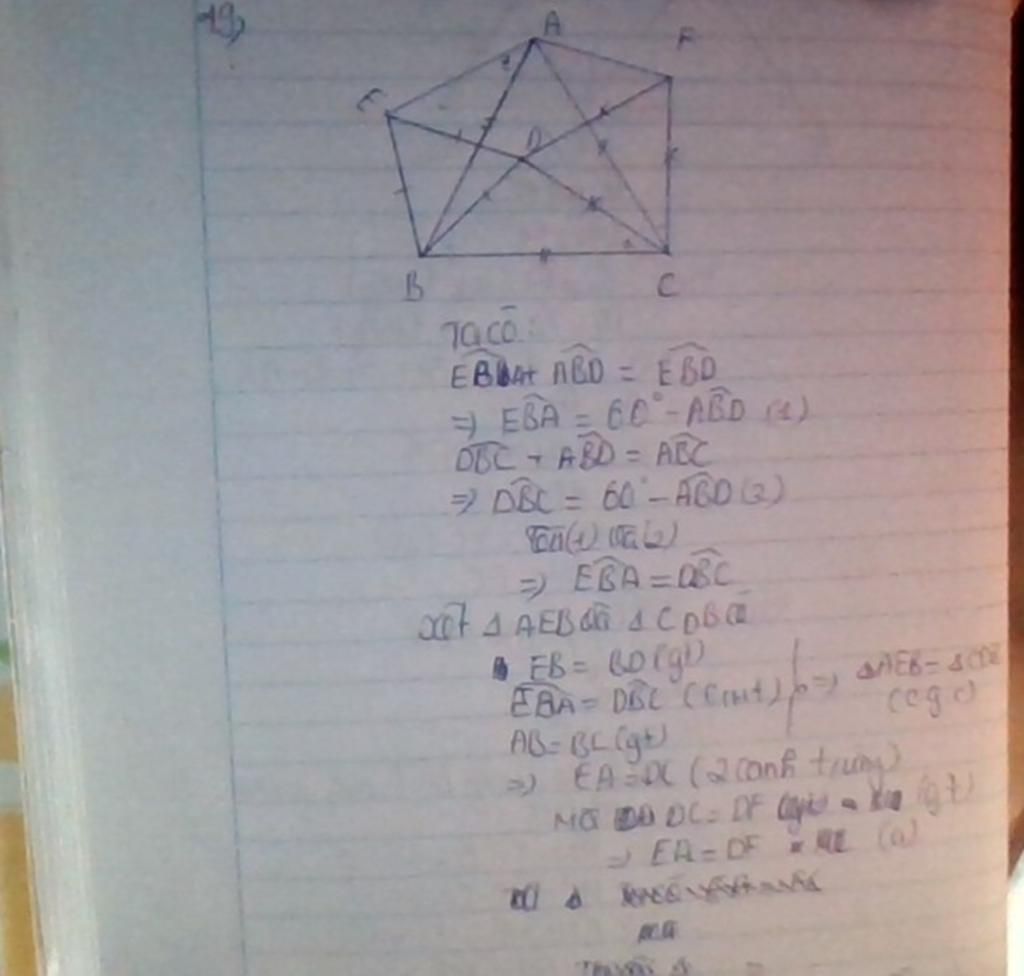 19)
A
F
E
D
B
C
Ta có:
EBA + ABD = EBD
=> EBA = 60° - ABD (1)
DBC + ABD = ABC
=> DBC = 60° - ABD (2)
Từ (1) và (2)
=> EBA = DBC
Xét Δ AEB và Δ CDB có
EB = BD (gt)
EBA = DBC (cmt) => ΔAEB = ΔCDB
AB = BC (gt) (c g c)
=> EA = DC (2 cạnh t ứng)
Mà DC = DF (gt)
=> EA = DF (a)